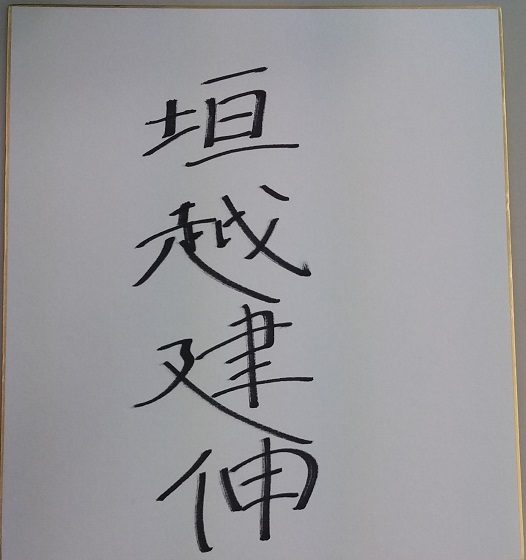 垣越建伸